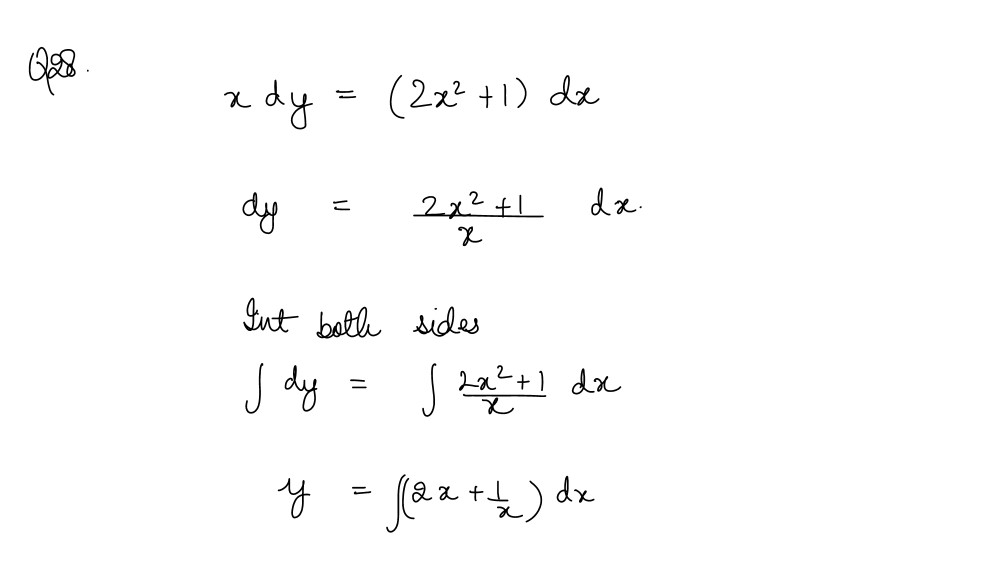 Q28.
x dy = (2x² + 1) dx
dy = (2x² + 1)/x dx.
Int both sides
∫ dy = ∫ (2x² + 1)/x dx
y = ∫(2x + 1/x) dx